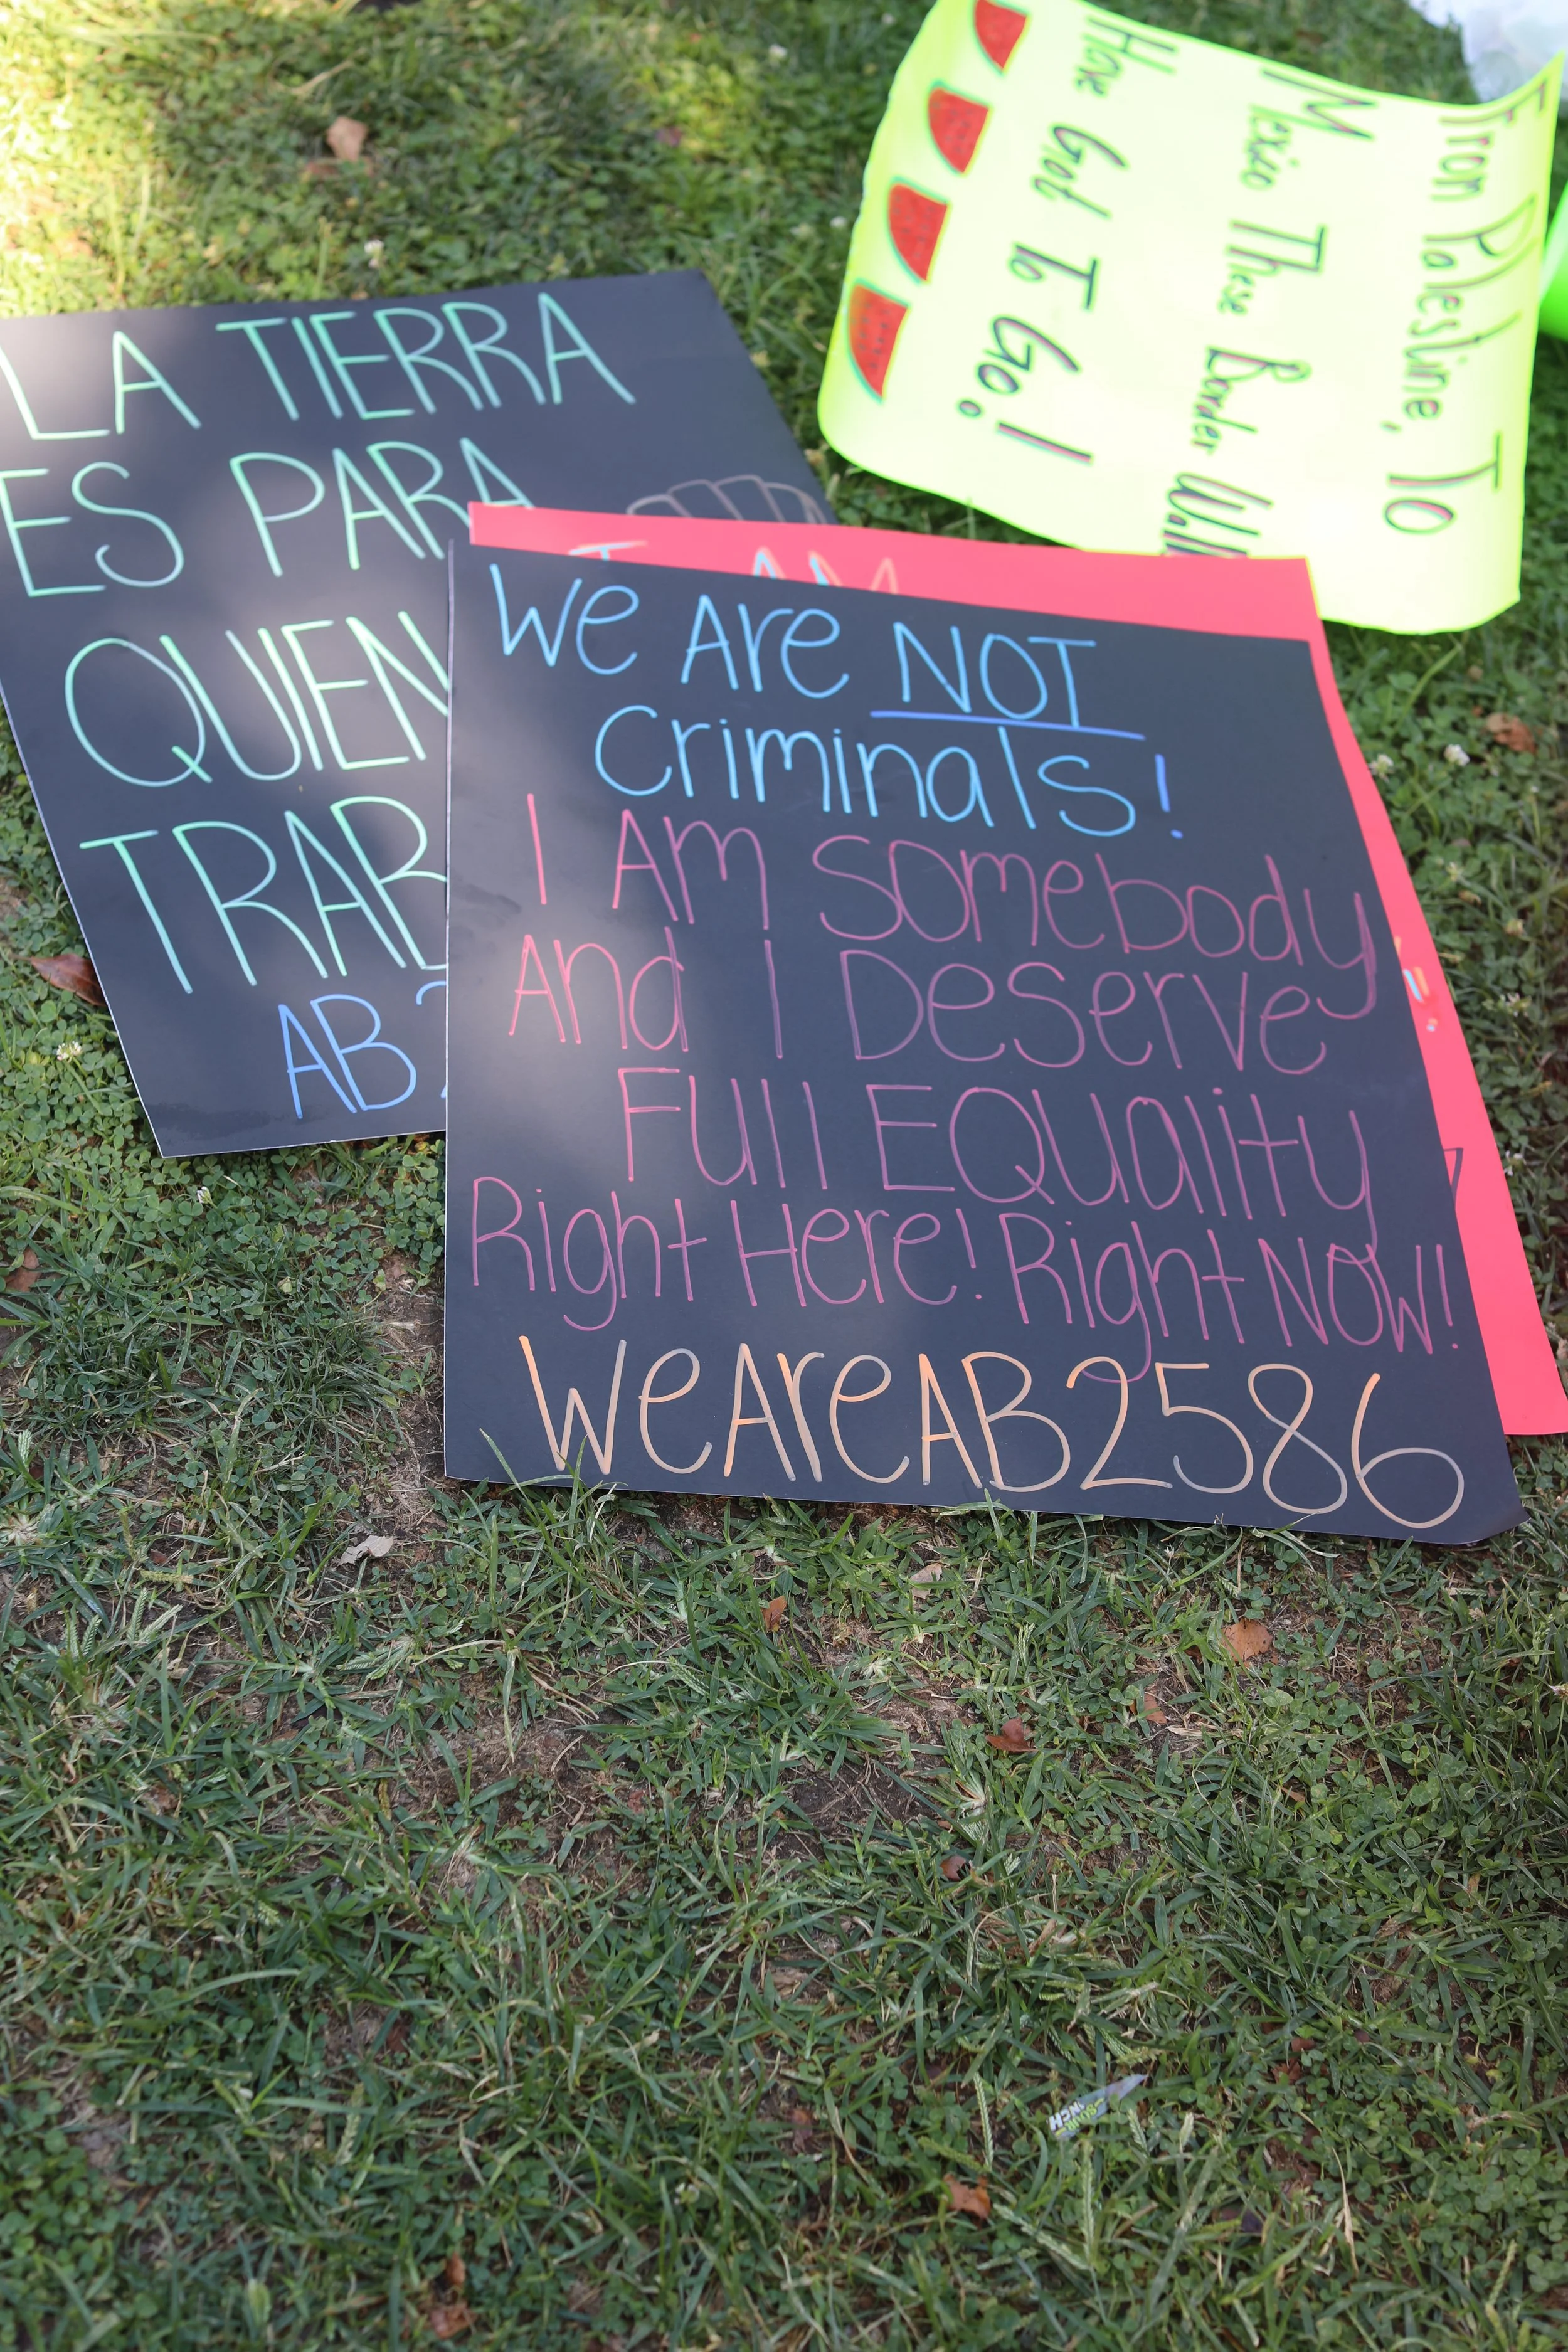 LA TIERRA
ES PARA
QUIEN
AB
We Are NOT
Criminals!
I Am Somebody
And I Deserve
Full Equality
Right Here! Right Now!
WeAreAB2586
I AM
From Palestine, To
Mexico These Border Walls
Have Got To Go!